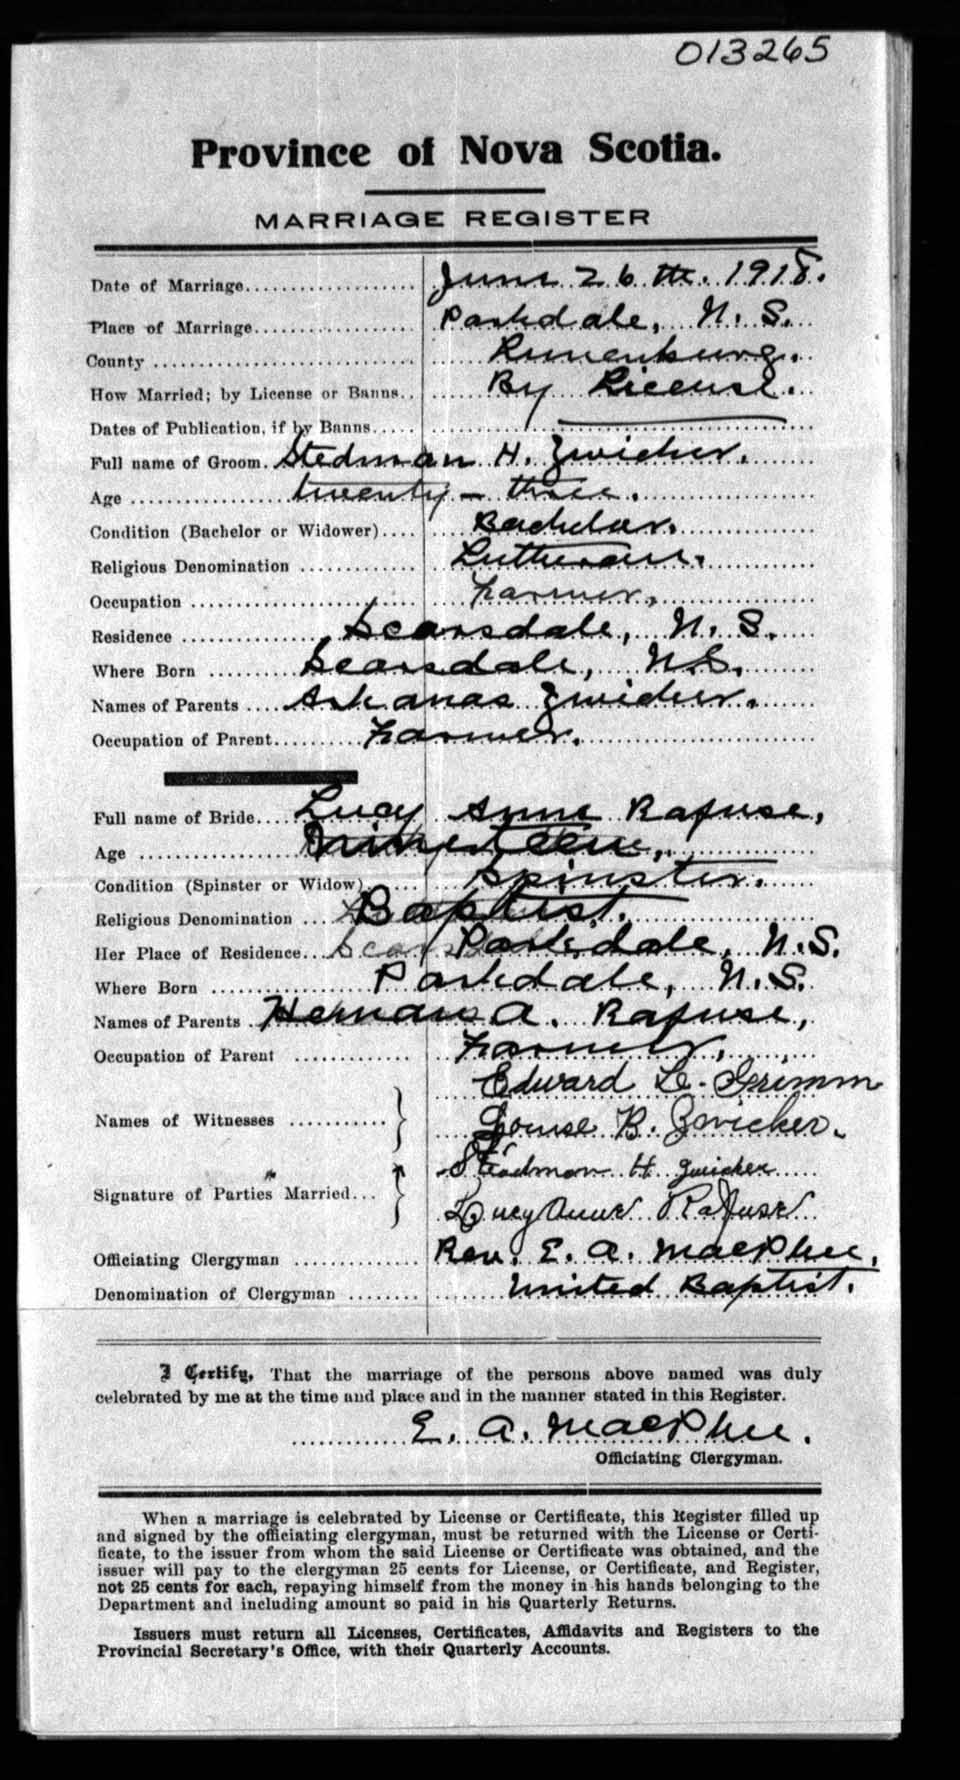 013265
Province of Nova Scotia.
MARRIAGE REGISTER
Date of Marriage.................. June 26th. 1918.
Place of Marriage.................. Parkdale, N. S.
County .................. Lunenburg.
How Married; by License or Banns.. By License.
Dates of Publication, if by Banns.....
Full name of Groom. Stedman H. Zwicker.
Age .................. twenty-three.
Condition (Bachelor or Widower).... Bachelor.
Religious Denomination ............ Lutheran.
Occupation .................. Farmer.
Residence .................. Scarsdale, N. S.
Where Born .......... Scarsdale, N.S.
Names of Parents .... Arkanas Zwicker.
Occupation of Parent.......... Farmer.
Full name of Bride.... Lucy Anne Rafuse,
Age .................. Nineteen,
Condition (Spinster or Widow)...... Spinster.
Religious Denomination ... Baptist.
Her Place of Residence... Parkdale, N.S.
Where Born .............. Parkdale, N.S.
Names of Parents .. A. Rafuse,
Occupation of Parent ............ Farmer,
Edward Grimm
Names of Witnesses ............
Louise B. Zwicker.
Steadman H Zwicker
Signature of Parties Married...
Lucy Anne Rafuse
Officiating Clergyman .............. Rev. E. A. MacPhee,
Denomination of Clergyman ........ United Baptist.
I Certify, That the marriage of the persons above named was duly
celebrated by me at the time and place and in the manner stated in this Register.
E. A. MacPhee.
Officiating Clergyman.
When a marriage is celebrated by License or Certificate, this Register filled up
and signed by the officiating clergyman, must be returned with the License or Certi-
ficate, to the issuer from whom the said License or Certificate was obtained, and the
issuer will pay to the clergyman 25 cents for License, or Certificate, and Register,
not 25 cents for each, repaying himself from the money in his hands belonging to the
Department and including amount so paid in his Quarterly Returns.
Issuers must return all Licenses, Certificates, Affidavits and Registers to the
Provincial Secretary's Office, with their Quarterly Accounts.